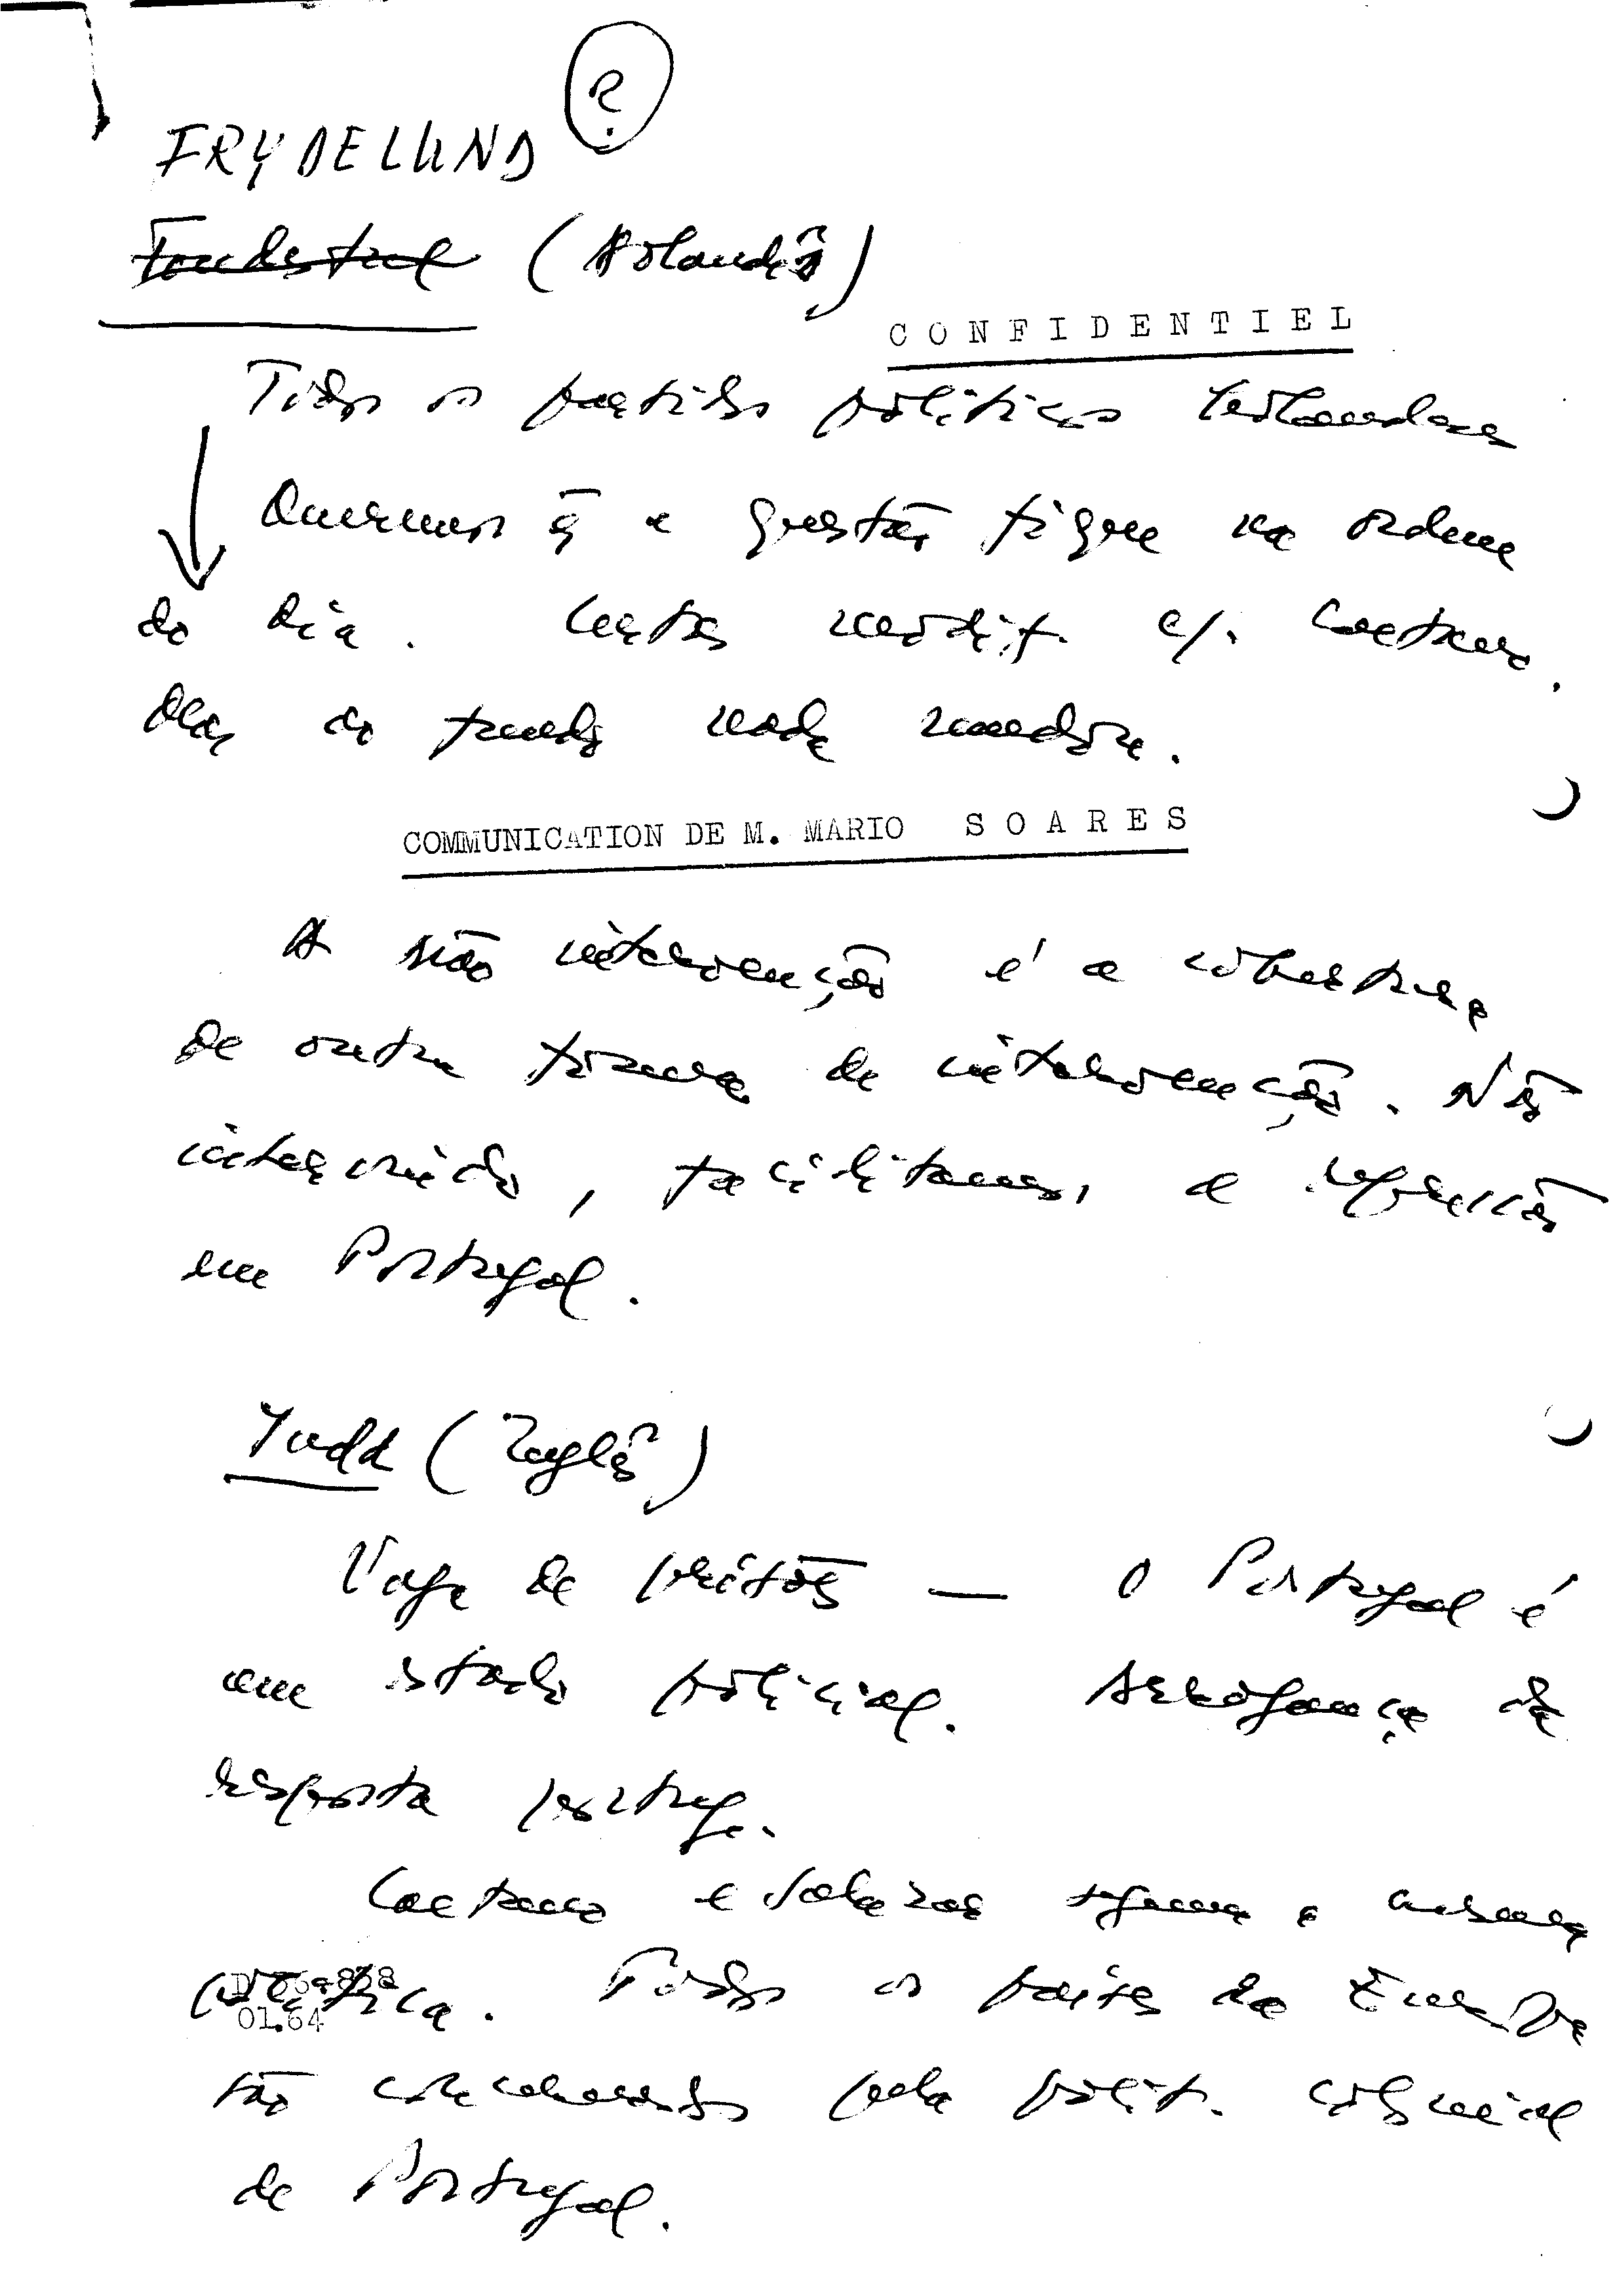 ?
FRYDELUND
Fondestul (Holandês)
CONFIDENTIEL
Todos os partidos políticos holandeses
Queremos q̄ a questão figure na ordem
do dia. Certas modif. c/. Caetano.
Mas no fundo nada mudou.
COMMUNICATION DE M. MARIO SOARES
A não intervenção é a
de outra forma de intervenção. Não
intervindo, facilitamos, a repressão
em Portugal.
Judd (Inglês)
Vaga de prisões — O Portugal é
um estado policial. Arrogança da
resposta portug.
Caetano e Salazar a mesma
política. Todos os países da Europa
são pela polit. colonial
de Portugal.
01.64